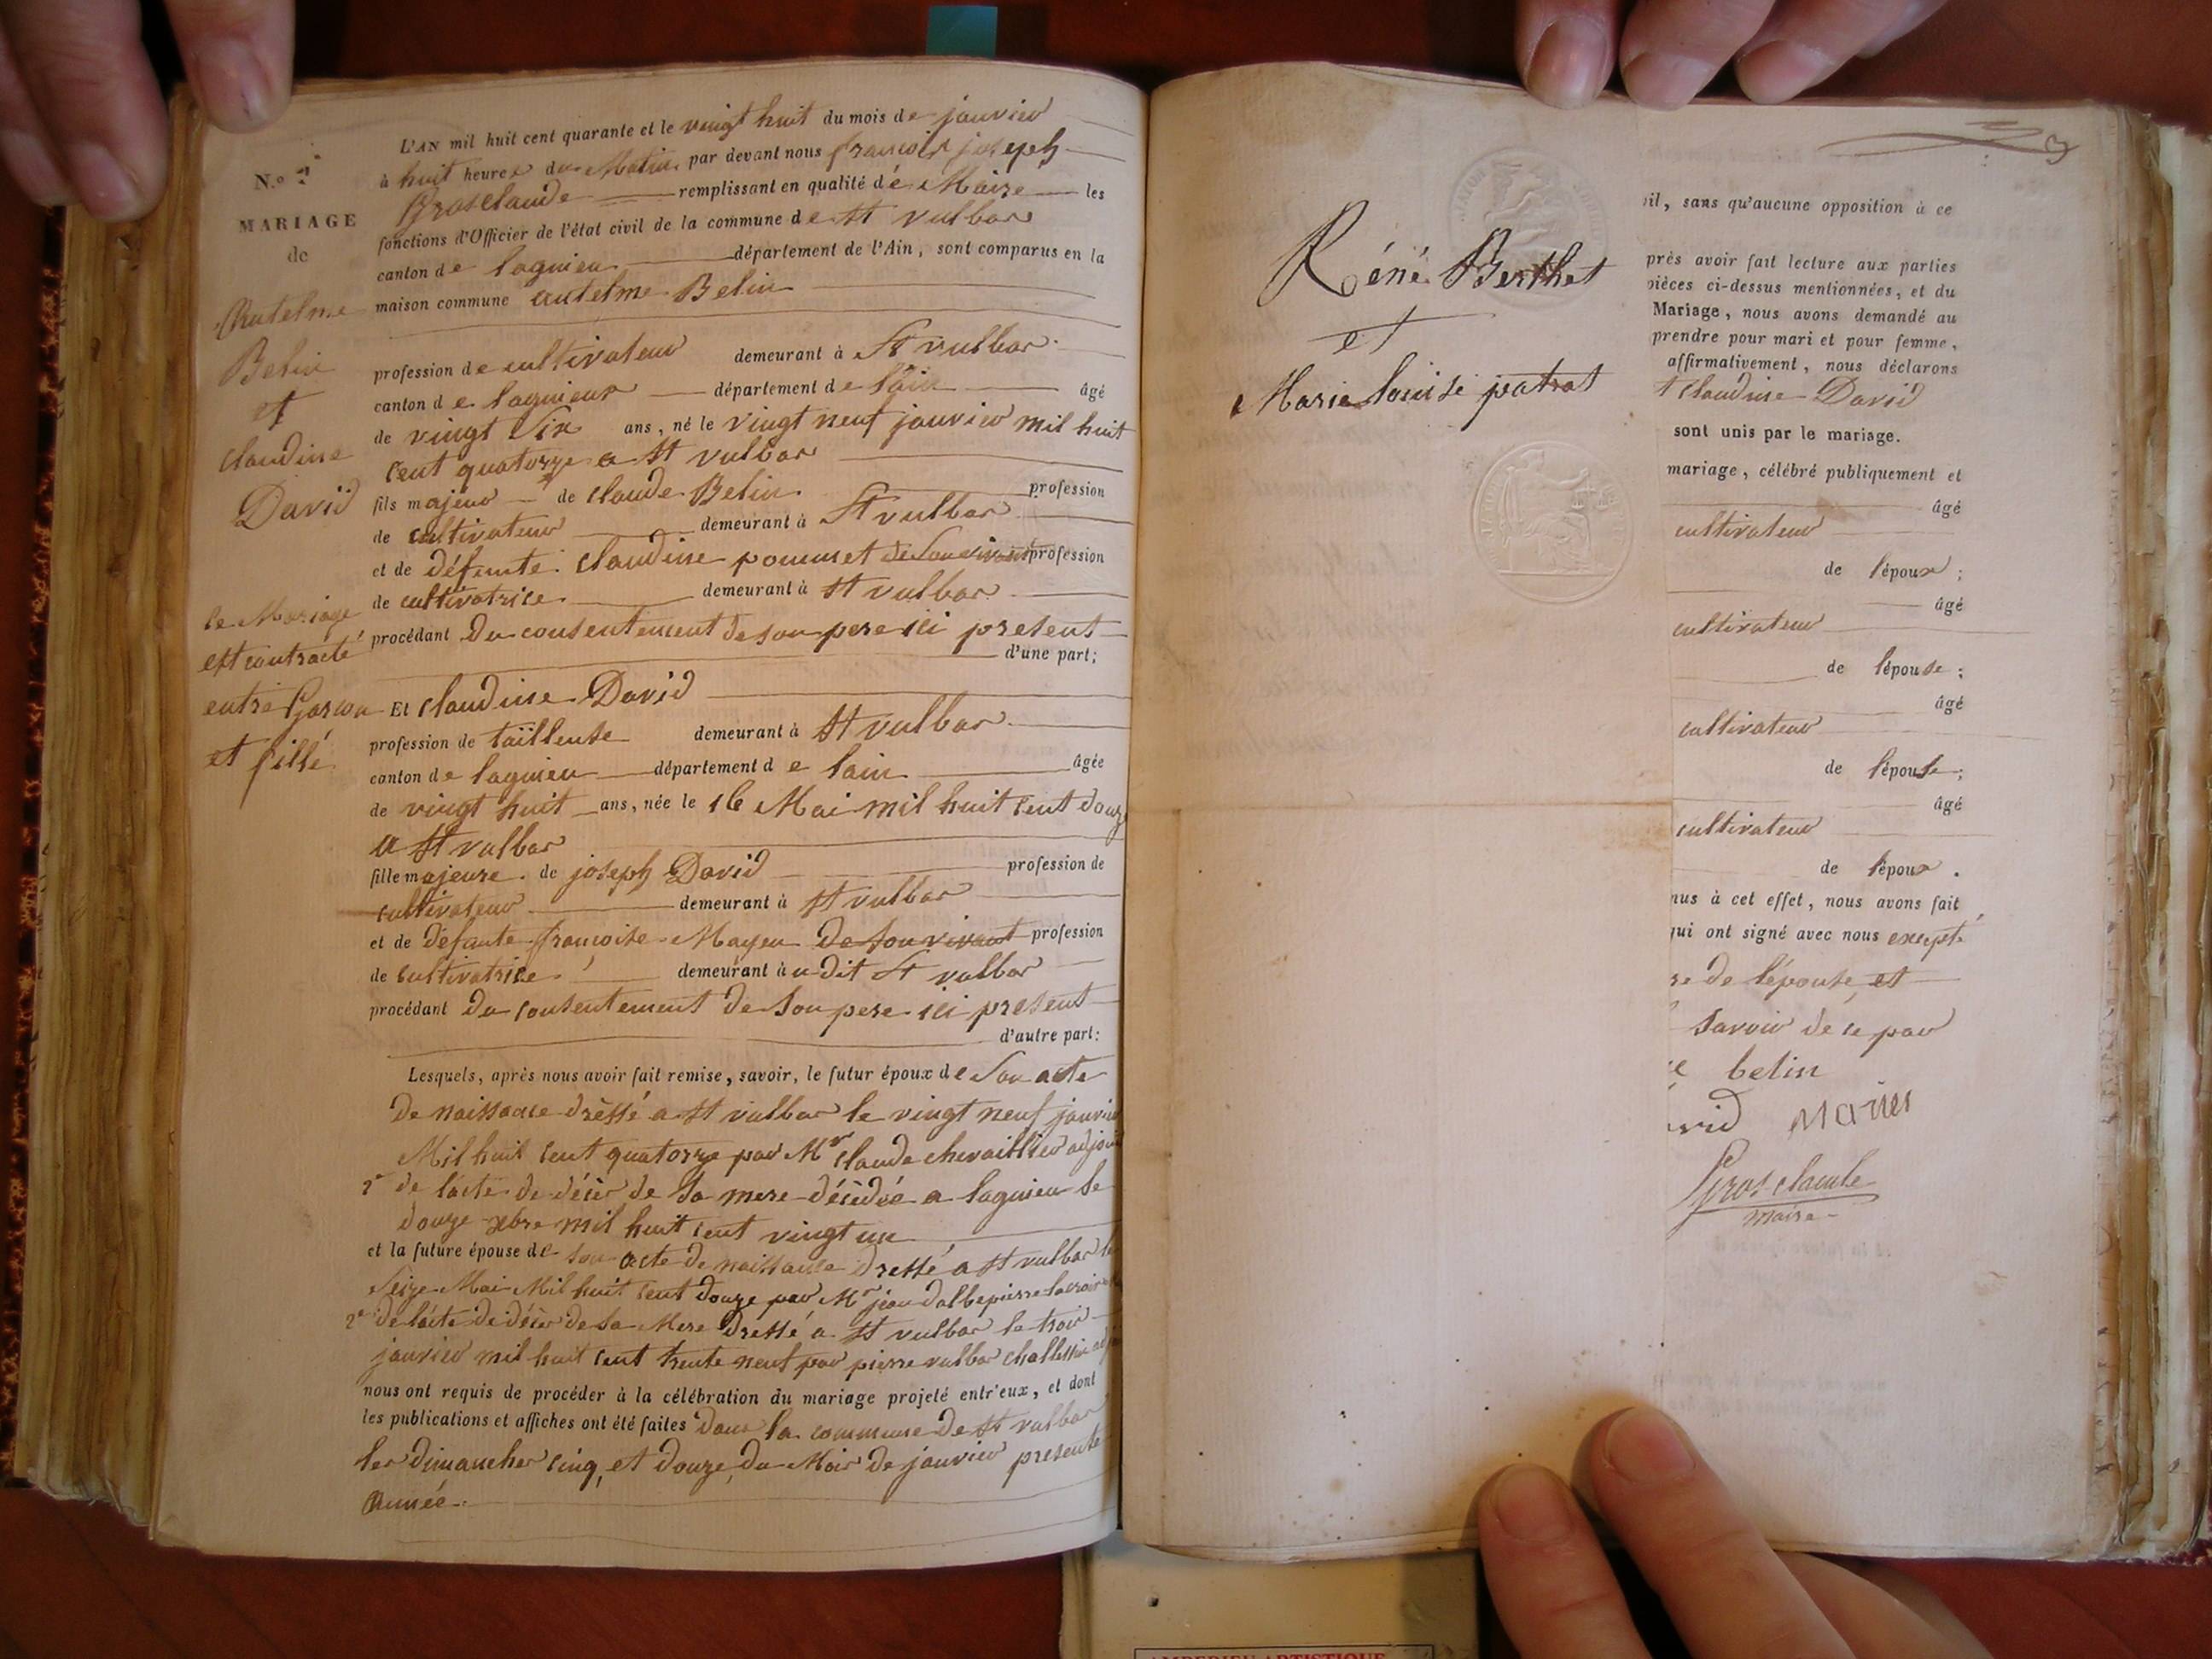 N.o
MARIAGE
de
Antelme
Belin
et
Claudine
David
le Mariage
est contracté
entre Garcon
et fille
L'AN mil huit cent quarante et le vingt huit du mois de janvier
à huit heures du Matin par devant nous francois joseph
Grosclaude remplissant en qualité dé Maire les
fonctions d'Officier de l'état civil de la commune de St vulbas
canton de lagnieu département de l'Ain, sont comparus en la
maison commune antelme Belin
profession de cultivateur demeurant à St vulbas
canton de lagnieux département de lain âgé
de vingt Six ans, né le vingt neuf janvier mil huit
cent quatorze a St vulbas
fils majeur de claude Belin profession
de cultivateur demeurant à St vulbas
et de défunte claudine pommet de Son vivant profession
de cultivatrice demeurant à St vulbas
procédant du consentement de son pere ici present
d'une part;
Et claudine David
profession de tailleuse demeurant à St vulbas
canton de lagnieu département de lain âgée
de vingt huit ans, née le 16 Mai mil huit cent douze
a St vulbas
fille majeure de joseph David profession de
cultivateur demeurant à St vulbas
et de défunte francoise Mayeu de Son vivant profession
de cultivatrice demeurant àu dit St vulbas
procédant du consentement de Son pere ici present
d'autre part:
Lesquels, après nous avoir fait remise, savoir, le futur époux de Son acte
de naissance dréssé a St vulbas le vingt neuf janvier
Mil huit cent quatorze par Mr claude chevaillier adjoint
2° de lacte de décès de Sa mere décédée a lagnieu le
douze xbre mil huit cent vingt un
et la future épouse de son acte de naissance dressé a St vulbas le
Seize Mai Mil huit cent douze par Mr jean dalbepierre
2° de lacte de décès de Sa Mere dressé a St vulbas le trois
janvier mil huit cent trente neuf par pierre vulbas
nous ont requis de procéder à la célébration du mariage projeté entr'eux, et dont
les publications et affiches ont été faites dans la commune de St vulbas
les dimanches cinq, et douze, du Mois de janvier presente
année.
Réné Berthet
et
Marie louise patrat
il, sans qu'aucune opposition à ce
près avoir fait lecture aux parties
pièces ci-dessus mentionnées, et du
Mariage, nous avons demandé au
prendre pour mari et pour femme,
affirmativement, nous déclarons
t claudine David
sont unis par le mariage.
mariage, célébré publiquement et
âgé
cultivateur
de lépoux;
âgé
cultivateur
de lépouse;
âgé
cultivateur
de lépouse;
âgé
cultivateur
de lépoux.
nus à cet effet, nous avons fait
qui ont signé avec nous excepté
re de lépouse, et
savoir de ce par
belin
vid
Grosclaude
maire
AMBERIEU ARTISTIQUE